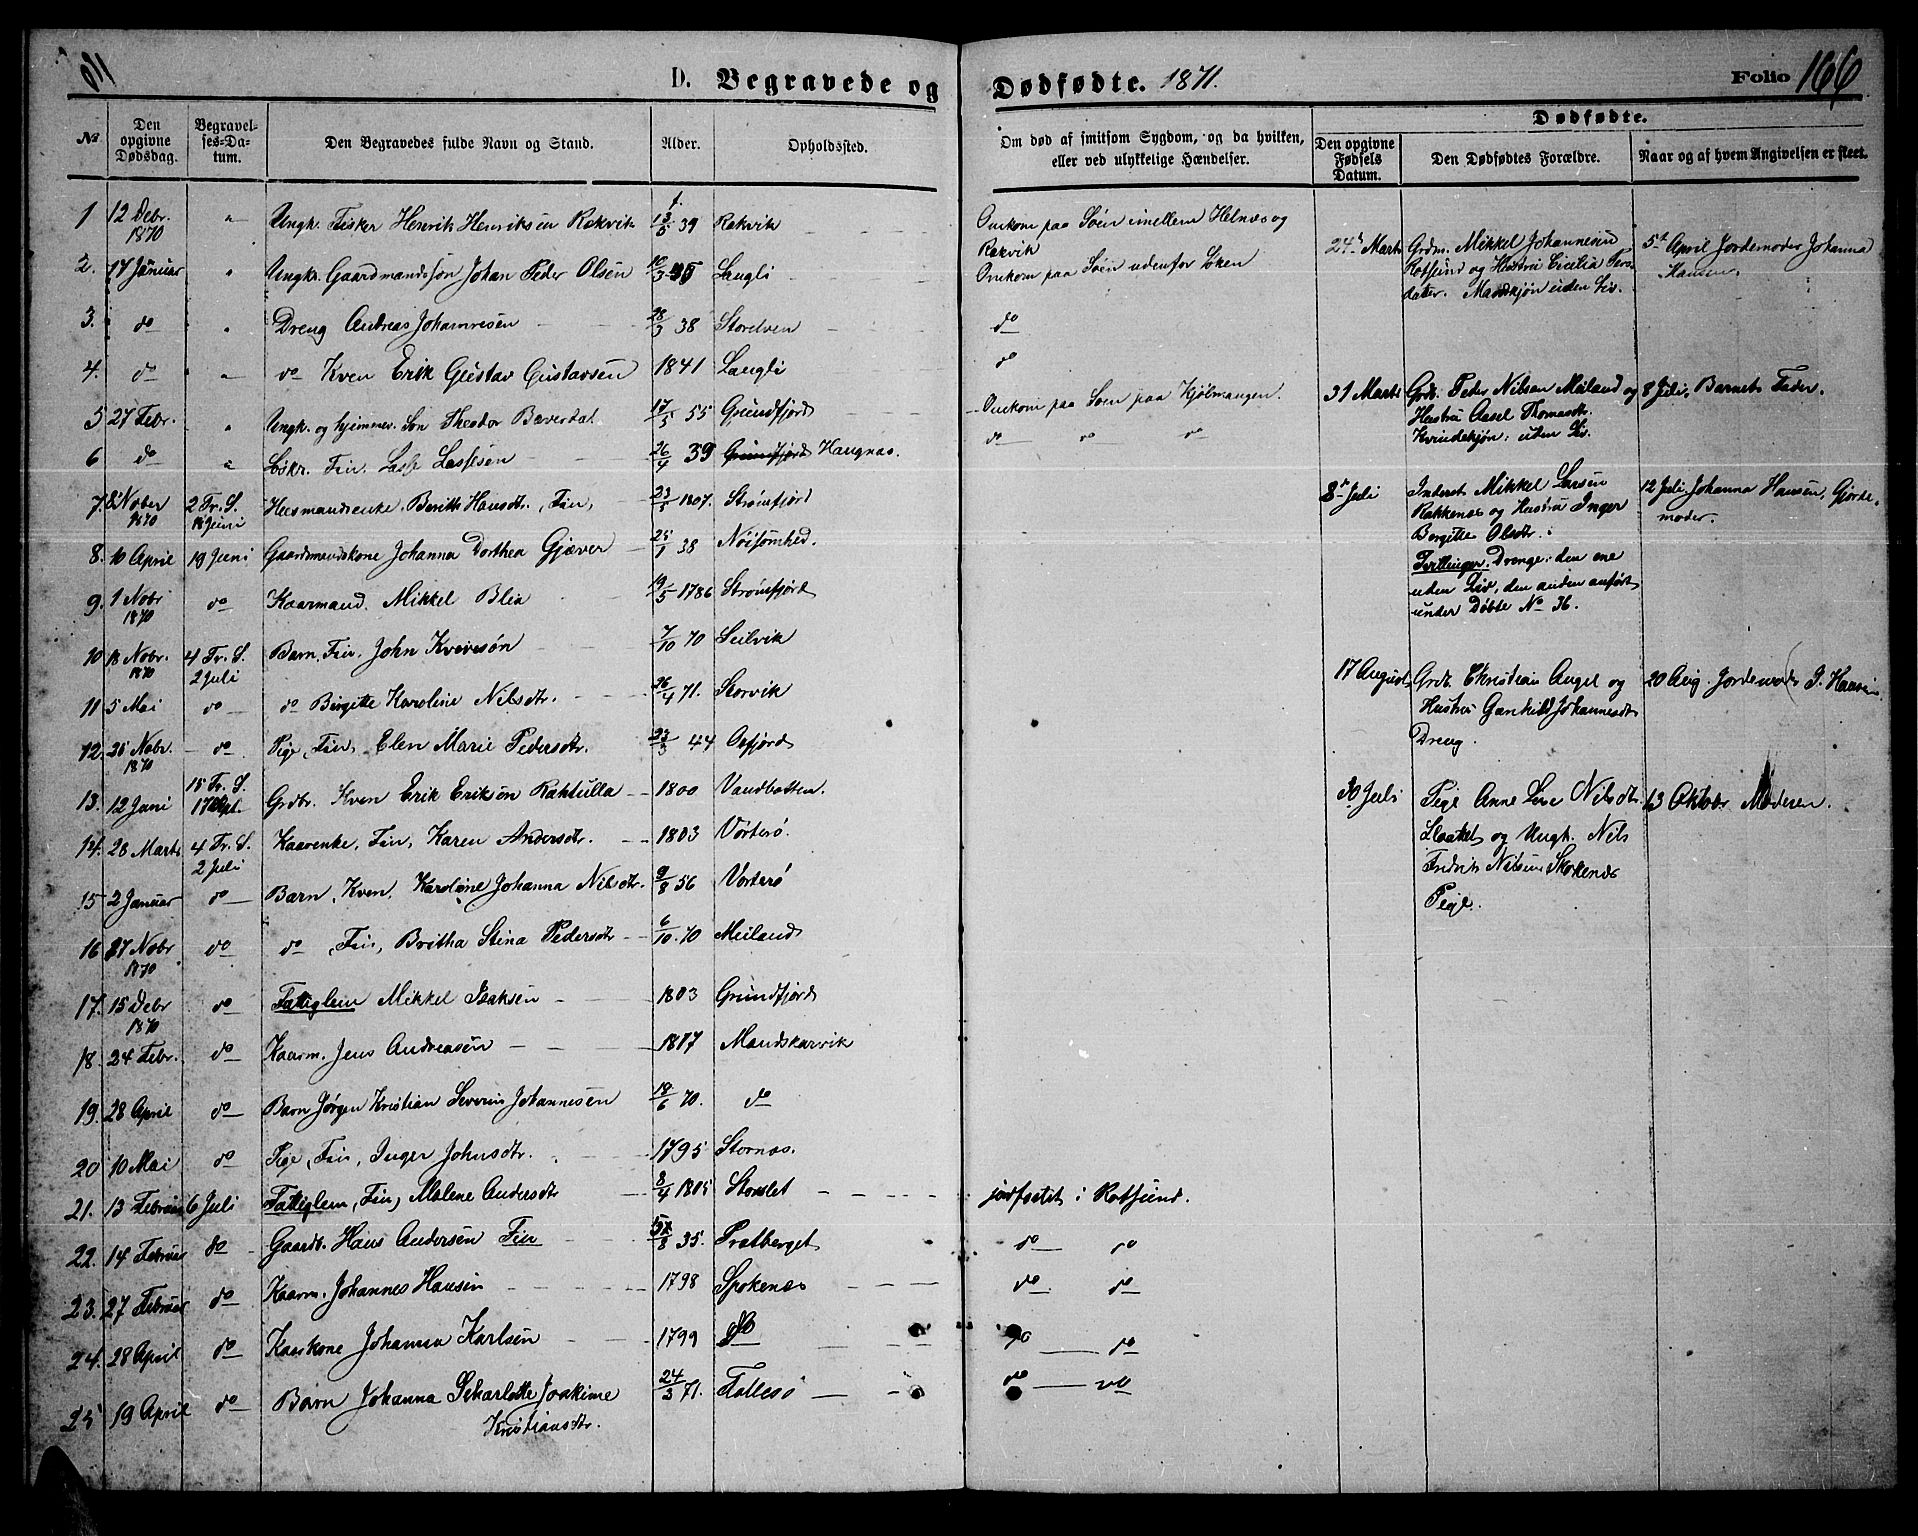 D. Begravede og Dødfødte. 1871. Folio 166
No
Den opgivne Dødsdag.
Begravelses-Datum.
Den Begravedes fulde Navn og Stand.
Alder.
Opholdssted.
Om død af smitsom Sygdom, og da hvilken, eller ved ulykkelige Hændelser.
Dødfødte.
Den opgivne Fødsels Datum.
Den Dødfødtes Forældre.
Naar og af hvem Angivelsen er skeet.
1 12 Debr. 1870 " Ungk. Fisker Henrik Henriksen Rakvik 39 Rakvik Omkom paa Søen imellem Helnæs og Rakvik
2. 17 Januar " Ungk. Gaardmandssøn Johan Peder Olsen 35 Langli Omkom paa Søen udenfor
3. do " Dreng Andreas Johannesen 28/3 38 Storelven do
4. do " do Kven Erik Gustav Gustavsen 1841 Langli do
5 27 Febr. " Ungk. og hjemmev. Søn Theodor Bæverdal 55 Grundfjord Omkom paa Søen paa Kjølmangen.
6 do " Løskr. Fin. Lasse Lassesen 26/4 39 Grundfjord Haugnæs. do do do
7. 8 Nober 1870 2 Tr. S. 18 Juni Husmandsenke. Berith Hansdtr., Fin, 1807. Strømfjord
8. 10 April 19 Juni Gaardmandskone Johanna Dorthea Gjæver 25/1 38 Nøisomhed.
9. 1 Nobr 1870 do Kaarmand. Mikkel Blia 19/5 1786 Strømfjord
10 18 Nobr. 1870 4 Tr. S. 2 Juli Barn, Fin, John Kvivesøn 7/10 70 Seilvik
11 5 Mai do do Birgitte Karoline Nilsdtr. 26/4 71. Storvik
12. 25 Nobr. 1870 do Pige, Fin, Elen Marie Pedersdtr. 23/3 44 Oxfjord
13. 12 Juni 15 Tr. S. 17 Sept. Grdbr. Kven Erik Eriksøn Rahtulla 1800 Vandbotten.
14. 28 Marts 4 Tr. S. 2 Juli Kaarenke, Fin, Karen Andersdtr. 1803 Vorterø.
15 2 Januar do Barn, Kven, Karoline Johanna Nilsdtr. 9/8 56 Vorterø
16 27 Nobr 1870 do do, Fin, Britha Stina Pedersdtr 6/10 70 Meiland
17. 15 Debr 1870 do Fattiglem Mikkel Isaksen 1803 Grundfjord
18. 24 Febr. do Kaarm. Jens Andreasen 1817 Mandskarvik
19. 28 April do Barn Jørgen Kristian Severin Johannesen 19/6 70. do
20 10 Mai do Pige, Fin, Inger Johnsdtr. 1795 Stornæs.
21. 13 Februar 6 Juli Fattiglem, Fin, Malene Andersdtr 8/4 1805 Storslet jordfæstet i Rotsund.
22. 14 Februar do Gaardb. Hans Andersen Fin 35. Pratberget do do
23. 27 Februar do Kaarm. Johannes Hansen 1798 Spokenæs do do
24. 28 April do Kaarkone Johanna Karlsen 1799 do do do
25 19 April do Barn Johanna Scharlotte Joakime Kristiansdtr. 24/3 71. Follesø do do
24de Marts Grdm. Mikkel Johannesen Rotsund og Hustru Cecilia Persdatter. Mandkjøn uden Liv. 5te April Jordemoder Johanna Hansen
31 Marts Grdb. Peder Nilsen Meiland og Hustru Aasel Thomasdtr. Kvindekjøn: uden Liv. 8 Juli, Barnets Fader.
8de Juli Inderst Mikkel Larsen Rakkenæs og Hustru Inger Bergitte Olsdtr.: Tvillinger. Drenge: den ene uden Liv, den anden anført under Døbte No 36. 12 Juli Johanna Hansen, Gjordemoder.
17 August Grdb. Christian Angel og Hustru Gunhild Johannesdtr Dreng. 20 Aug. Jordemoder J. Hansen
30 Juli Pige Anne Lise Nilsdtr. og Ungk. Nils Fredrik Nilsen Skokenæs Pige. 13 Oktobr. Moderen.